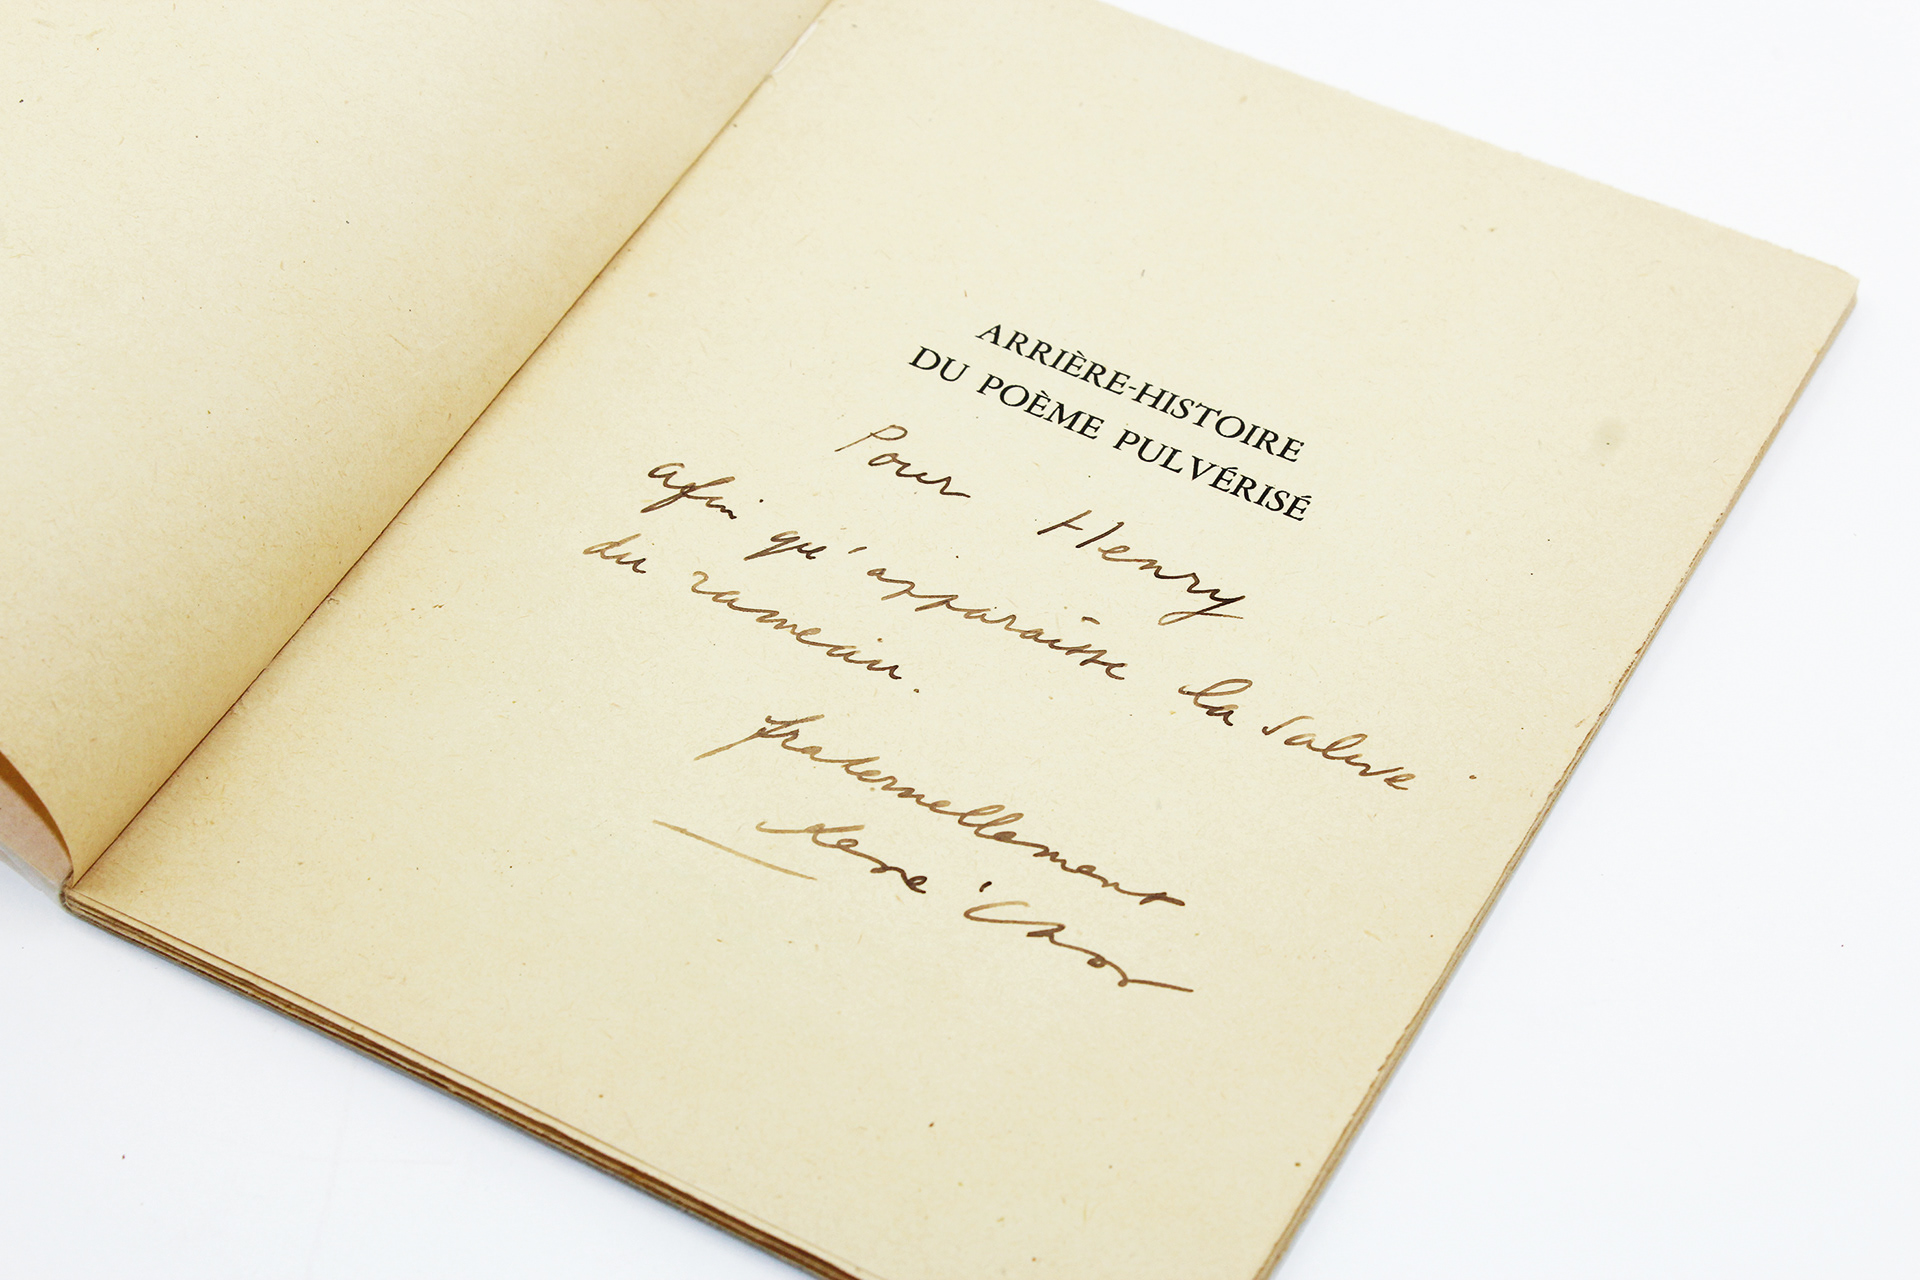 ARRIÈRE-HISTOIRE
DU POÈME PULVÉRISÉ
Pour Henry
afin qu'apparaisse la salve
du rameau.
fraternellement
René Char